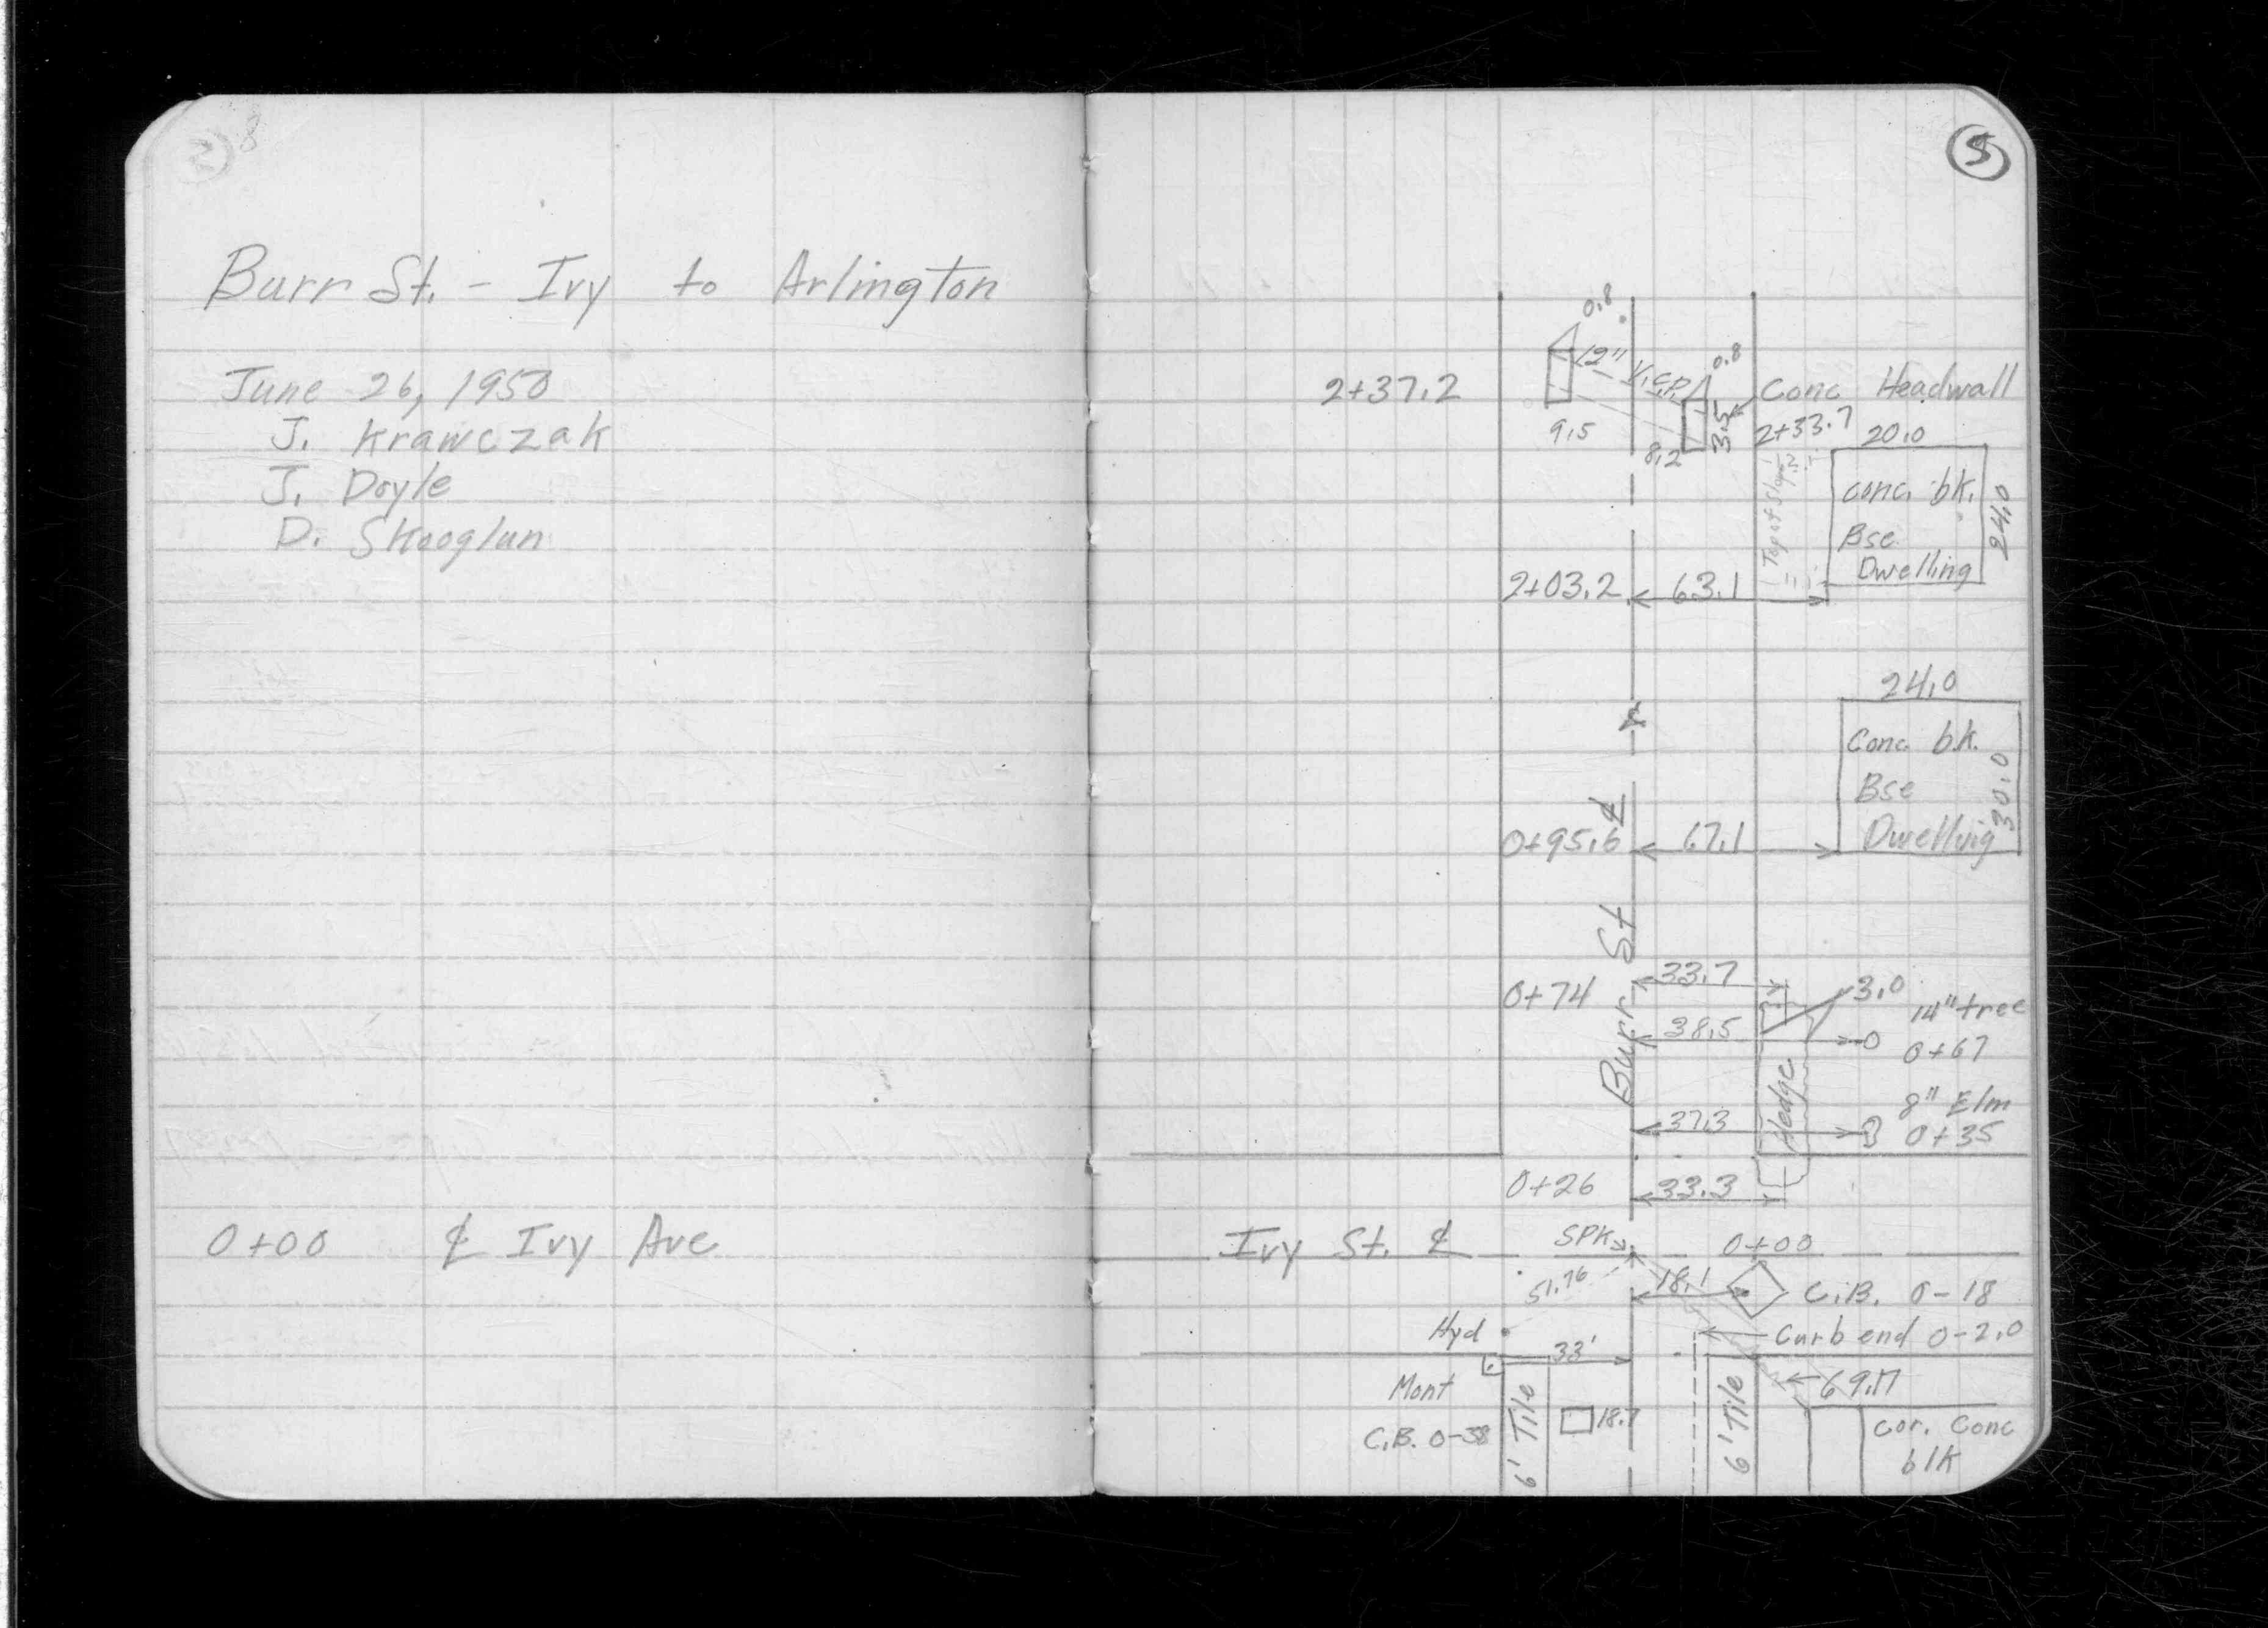 Burr St. - Ivy to Arlington
June 26, 1950
J. Krawczak
J. Doyle
D. Skooglun
0+00 ℄ Ivy Ave
5
0.8
12" V.C.P.
0.8
2+37.2
Conc Headwall
9.5
8.2
3.5
2+33.7
20.0
Top of Slope
conc. bk.
Bse
Dwelling
24.0
2+03.2
63.1
24.0
Conc bk.
Bse
Dwelling
30.0
℄
0+95.6
67.1
Burr St
33.7
0+74
3.0
14" tree
38.5
0+67
Hedge
8" Elm
37.3
0+35
0+26
33.3
Ivy St. ℄
SPK
0+00
51.76
18.1
C.B. 0-18
Hyd
Curb end 0-2.0
33'
Mont
69.17
C.B. 0-38
6' Tile
18.7
6' Tile
cor. Conc
blk